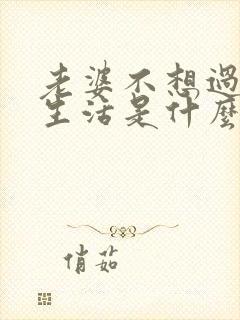 老婆不想過
生活是什麼
俏茹